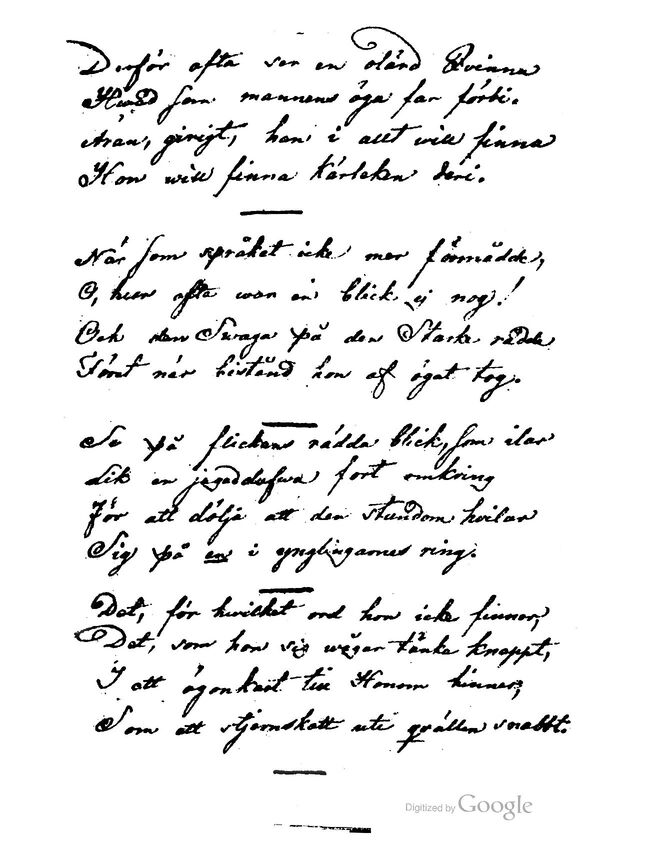 Derför ofta ser en olärd Qvinna
Hwad som mannens öga far förbi.
Äran, girigt, han i allt will finna
Hon will finna kärleken deri.
När som språket icke mer förmådde,
O, huru ofta war en blick ej nog!
Och den Swaga på den Starke rådde
Först när bistånd hon af ögat tog.
Se på flickans rädda blick, som ilar
Lik en jagad dufwa fort omkring
För att dölja att den stundom hvilar
Sig på en i ynglingarnes ring.
Det, för hwilket ord hon icke finner,
Det, som hon sig wågar tänka knappt,
I ett ögonkast till Honom hinner,
Som ett stjernskott uti qvällen snabbt.
Digitized by Google